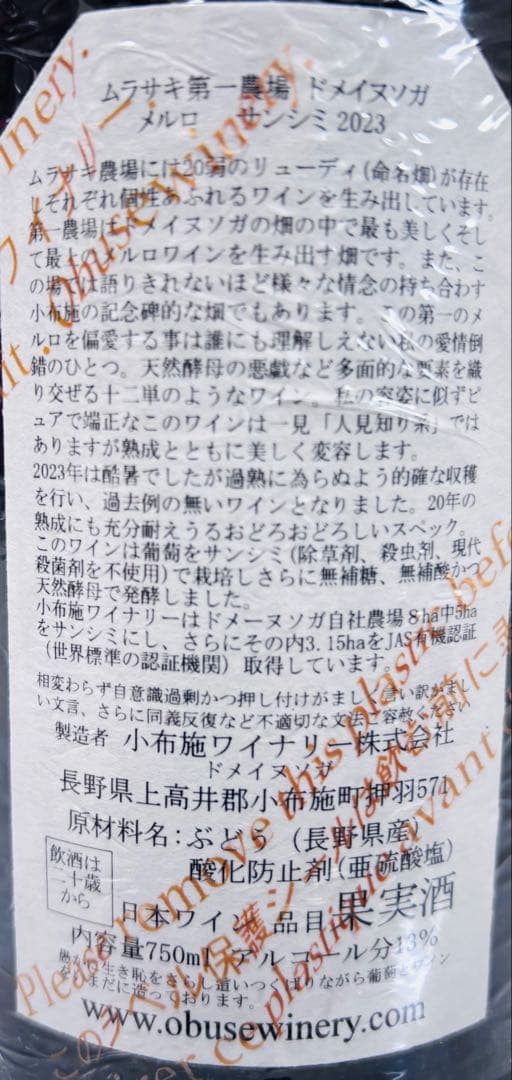 ムラサキ第一農場 ドメイヌソガ
メルロ サンシミ 2023
ムラサキ農場には20弱のリューディ(命名畑)が存在
しそれぞれ個性あふれるワインを生み出しています。
第一農場はドメイヌソガの畑の中で最も美しくそし
て最上のメルロワインを生み出す畑です。また、こ
の場では語りきれないほど様々な情念の持ち合わす
小布施の記念碑的な畑でもあります。この第一のメ
ルロを偏愛する事は誰にも理解しえない私の愛情倒
錯のひとつ。天然酵母の悪戯など多面的な要素を織
り交ぜる十二単のようなワイン。私の容姿に似ずピ
ュアで端正なこのワインは一見「人見知り系」では
ありますが熟成とともに美しく変容します。
2023年は酷暑でしたが過熟に為らぬよう的確な収穫
を行い、過去例の無いワインとなりました。20年の
熟成にも充分耐えうるおどろおどろしいスペック。
このワインは葡萄をサンシミ(除草剤、殺虫剤、現代
殺菌剤を不使用)で栽培しさらに無補糖、無補酸かつ
天然酵母で発酵しました。
小布施ワイナリーはドメーヌソガ自社農場8ha中5ha
をサンシミにし、さらにその内3.15haをJAS有機認証
(世界標準の認証機関)取得しています。
相変わらず自意識過剰かつ押し付けがましく言い訳がまし
い文言、さらに同義反復など不適切な文法ご容赦ください
製造者 小布施ワイナリー株式会社
ドメイヌソガ
長野県上高井郡小布施町押羽571
原材料名:ぶどう(長野県産)
酸化防止剤(亜硫酸塩)
飲酒は
二十歳
から
日本ワイン 品目 果実酒
内容量750ml アルコール分13%
愚かな生き恥をさらし這いつくばりながら葡萄とワイン
をいまだに造っております。
www.obusewinery.com
obusewinery.
Please remove this plastic before